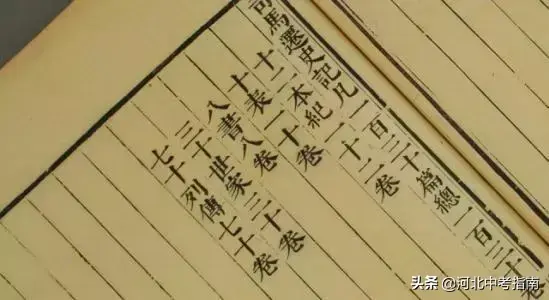 司馬遷史記凡一百三十篇總一百三十卷
十二本紀一十二卷
十表一十卷
八書八卷
三十世家三十卷
七十列傳七十卷
头条 @河北中考指南